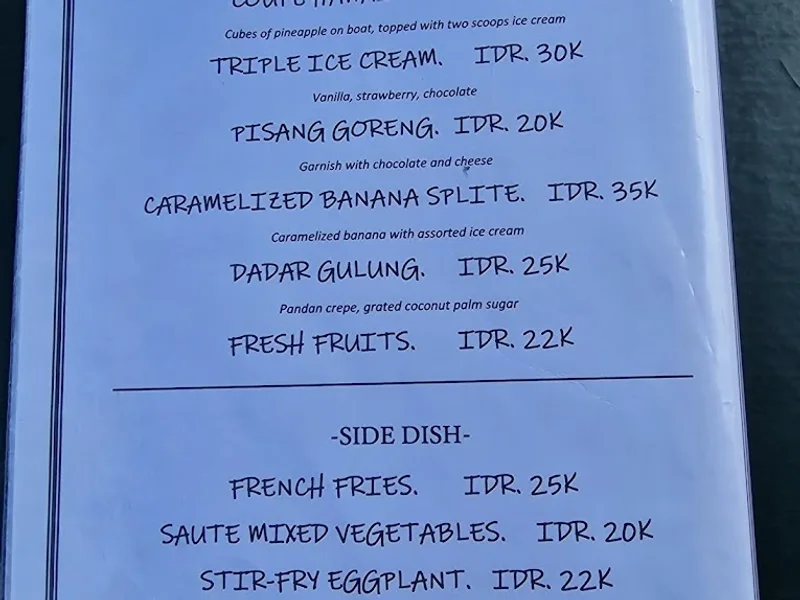 Cubes of pineapple on boat, topped with two scoops ice cream
TRIPLE ICE CREAM. IDR. 30K
Vanilla, strawberry, chocolate
PISANG GORENG. IDR. 20K
Garnish with chocolate and cheese
CARAMELIZED BANANA SPLITE. IDR. 35K
Caramelized banana with assorted ice cream
DADAR GULUNG. IDR. 25K
Pandan crepe, grated coconut palm sugar
FRESH FRUITS. IDR. 22K
-SIDE DISH-
FRENCH FRIES. IDR. 25K
SAUTE MIXED VEGETABLES. IDR. 20K
STIR-FRY EGGPLANT. IDR. 22K